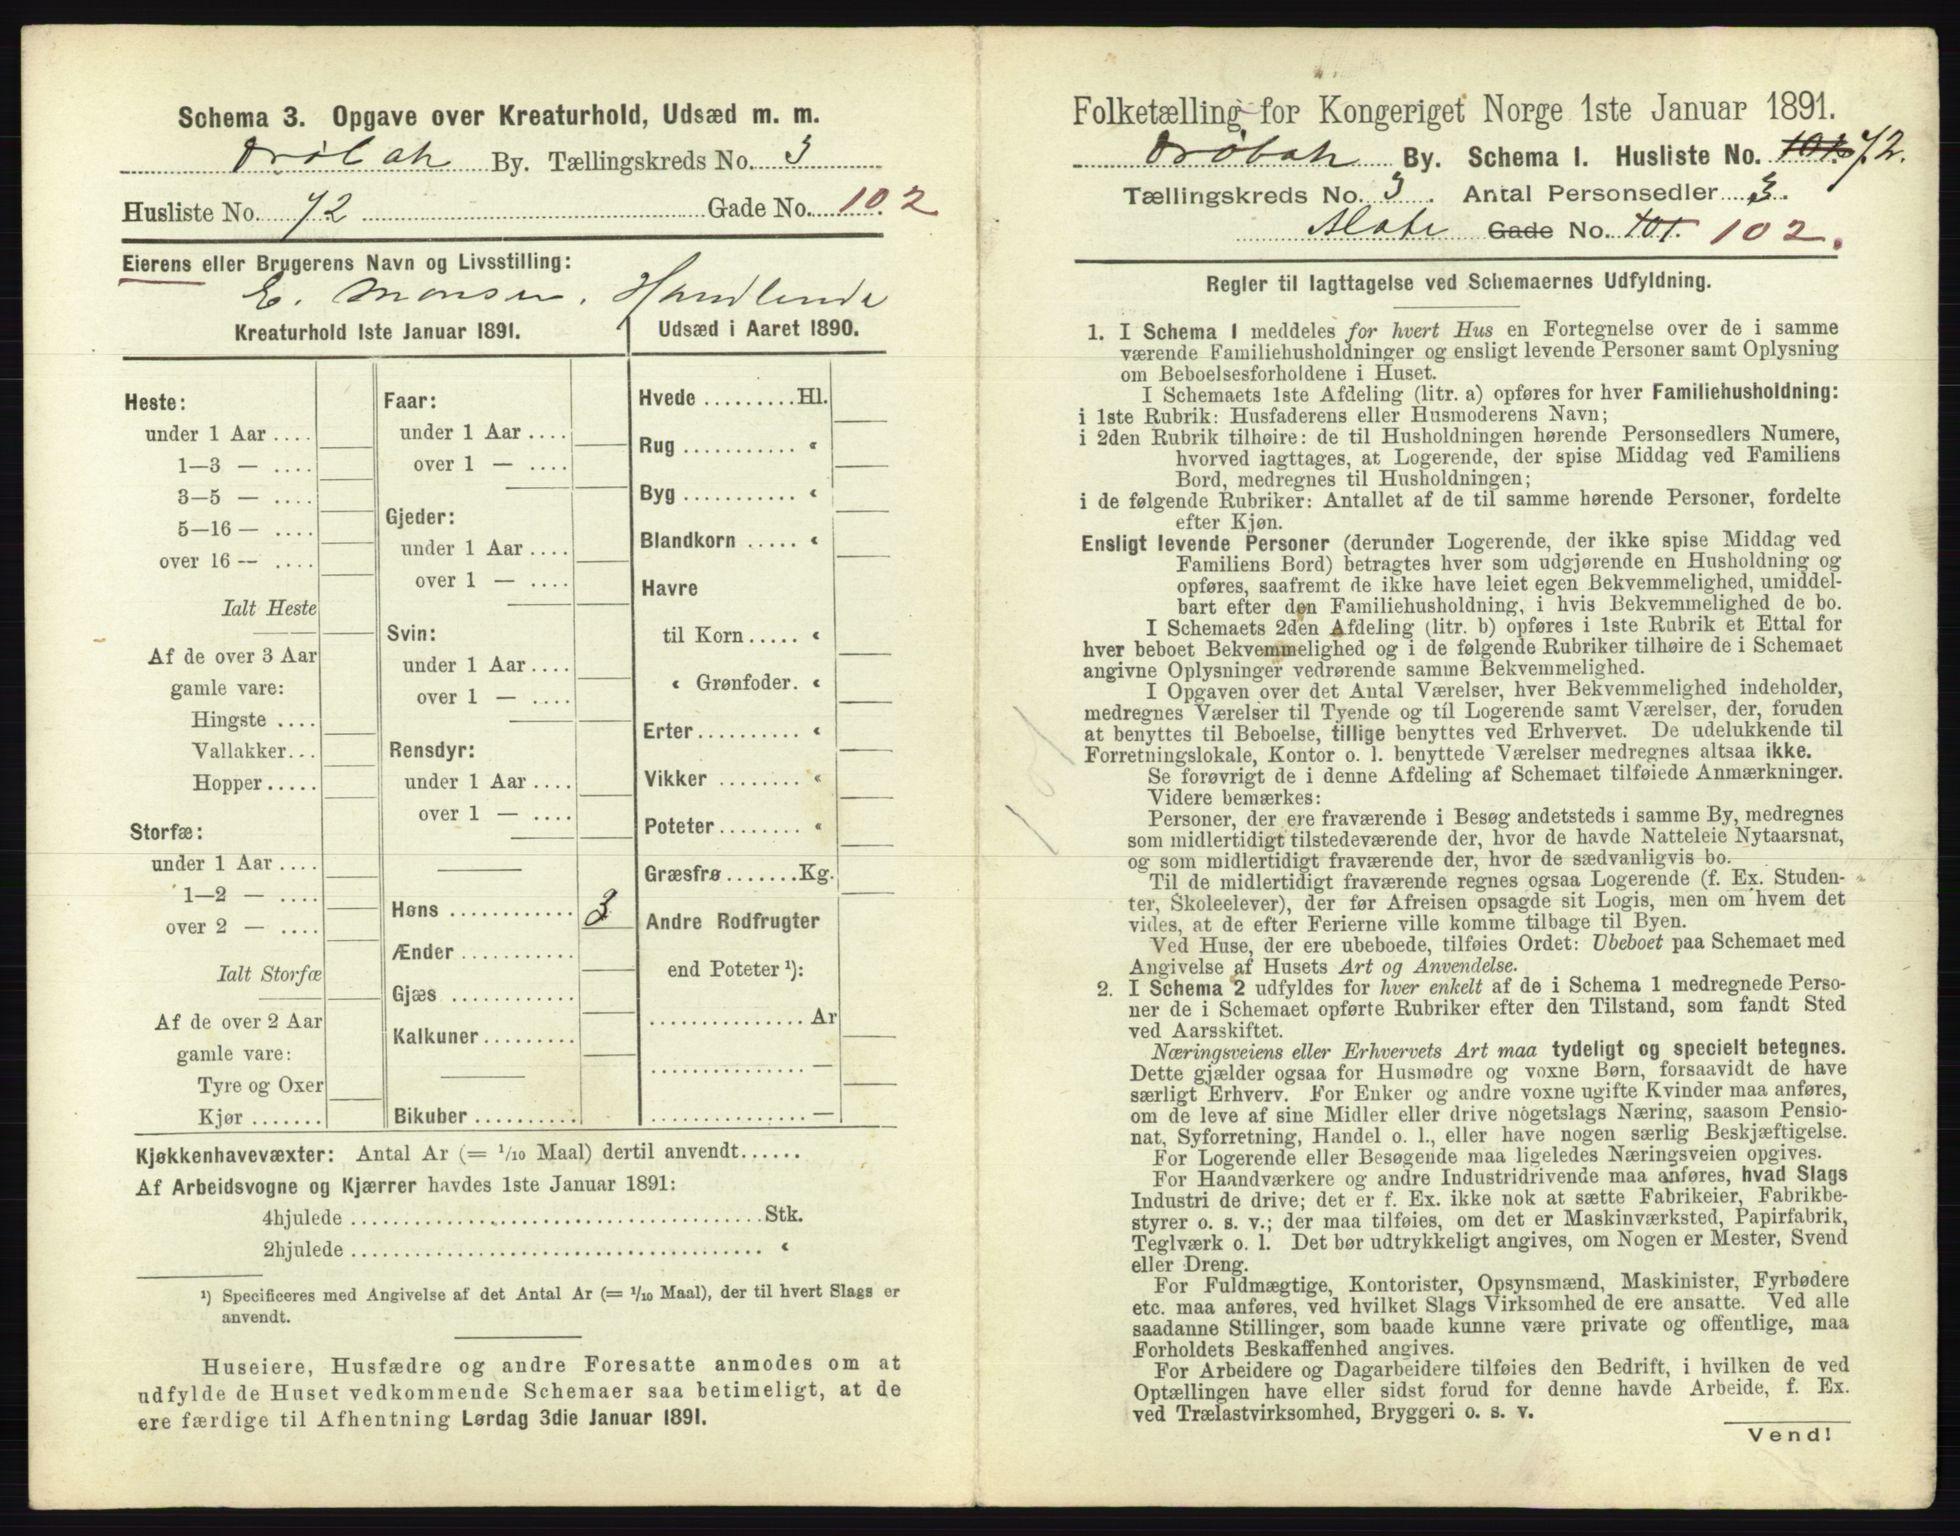 Schema 3. Opgave over Kreaturhold, Udsæd m. m.
Drøbak By. Tællingskreds No. 3
Husliste No. 72 Gade No. 102
Eierens eller Brugerens Navn og Livsstilling:
E. Monsen. Handlende
Kreaturhold 1ste Januar 1891.
Udsæd i Aaret 1890.
Heste:
under 1 Aar ....
1—3 — ....
3—5 — ....
5—16 — ....
over 16 — ....
Ialt Heste
Af de over 3 Aar
gamle vare:
Hingste ....
Vallakker...
Hopper.....
Storfæ:
under 1 Aar ....
1—2 — ....
over 2 — ....
Ialt Storfæ
Af de over 2 Aar
gamle vare:
Tyre og Oxer
Kjør .......
Faar:
under 1 Aar ....
over 1 — ....
Gjeder:
under 1 Aar ....
over 1 — ....
Svin:
under 1 Aar ....
over 1 — ....
Rensdyr:
under 1 Aar ....
over 1 — ....
Høns ............ 3
Ænder ...........
Gjæs ............
Kalkuner.........
Bikuber ..........
Hvede .........Hl.
Rug ........... "
Byg ........... "
Blandkorn ..... "
Havre
til Korn ..... "
" Grønfoder. "
Erter.......... "
Vikker ........ "
Poteter........ "
Græsfrø .......Kg.
Andre Rodfrugter
end Poteter ¹):
............... Ar
............... —
............... —
Kjøkkenhavevæxter: Antal Ar (= 1/10 Maal) dertil anvendt......
Af Arbeidsvogne og Kjærrer havdes 1ste Januar 1891:
4hjulede ........................................Stk.
2hjulede ........................................ "
¹) Specificeres med Angivelse af det Antal Ar (= 1/10 Maal), der til hvert Slags er
anvendt.
Huseiere, Husfædre og andre Foresatte anmodes om at
udfylde de Huset vedkommende Schemaer saa betimeligt, at de
ere færdige til Afhentning Lørdag 3die Januar 1891.
Folketælling for Kongeriget Norge 1ste Januar 1891.
Drøbak By. Schema 1. Husliste No. 101. 72.
Tællingskreds No. 3. Antal Personsedler 3.
Gade No. 101. 102.
Regler til Iagttagelse ved Schemaernes Udfyldning.
1. I Schema 1 meddeles for hvert Hus en Fortegnelse over de i samme
værende Familiehusholdninger og ensligt levende Personer samt Oplysning
om Beboelsesforholdene i Huset.
I Schemaets 1ste Afdeling (litr. a) opføres for hver Familiehusholdning:
i 1ste Rubrik: Husfaderens eller Husmoderens Navn;
i 2den Rubrik tilhøire: de til Husholdningen hørende Personsedlers Numere,
hvorved iagttages, at Logerende, der spise Middag ved Familiens
Bord, medregnes til Husholdningen;
i de følgende Rubriker: Antallet af de til samme hørende Personer, fordelte
efter Kjøn.
Ensligt levende Personer (derunder Logerende, der ikke spise Middag ved
Familiens Bord) betragtes hver som udgjørende en Husholdning og
opføres, saafremt de ikke have leiet egen Bekvemmelighed, umiddel-
bart efter den Familiehusholdning, i hvis Bekvemmelighed de bo.
I Schemaets 2den Afdeling (litr. b) opføres i 1ste Rubrik et Ettal for
hver beboet Bekvemmelighed og i de følgende Rubriker tilhøire de i Schemaet
angivne Oplysninger vedrørende samme Bekvemmelighed.
I Opgaven over det Antal Værelser, hver Bekvemmelighed indeholder,
medregnes Værelser til Tyende og til Logerende samt Værelser, der, foruden
at benyttes til Beboelse, tillige benyttes ved Erhvervet. De udelukkende til
Forretningslokale, Kontor o. l. benyttede Værelser medregnes altsaa ikke.
Se forøvrigt de i denne Afdeling af Schemaet tilføiede Anmærkninger.
Videre bemærkes:
Personer, der ere fraværende i Besøg andetsteds i samme By, medregnes
som midlertidigt tilstedeværende der, hvor de havde Natteleie Nytaarsnat,
og som midlertidigt fraværende der, hvor de sædvanligvis bo.
Til de midlertidigt fraværende regnes ogsaa Logerende (f. Ex. Studen-
ter, Skoleelever), der før Afreisen opsagde sit Logis, men om hvem det
vides, at de efter Ferierne ville komme tilbage til Byen.
Ved Huse, der ere ubeboede, tilføies Ordet: Ubeboet paa Schemaet med
Angivelse af Husets Art og Anvendelse.
2. I Schema 2 udfyldes for hver enkelt af de i Schema 1 medregnede Perso-
ner de i Schemaet opførte Rubriker efter den Tilstand, som fandt Sted
ved Aarsskiftet.
Næringsveiens eller Erhvervets Art maa tydeligt og specielt betegnes.
Dette gjælder ogsaa for Husmødre og voxne Børn, forsaavidt de have
særligt Erhverv. For Enker og andre voxne ugifte Kvinder maa anføres,
om de leve af sine Midler eller drive nogetslags Næring, saasom Pensio-
nat, Syforretning, Handel o. l., eller have nogen særlig Beskjæftigelse.
For Logerende eller Besøgende maa ligeledes Næringsveien opgives.
For Haandværkere og andre Industridrivende maa anføres, hvad Slags
Industri de drive; det er f. Ex. ikke nok at sætte Fabrikeier, Fabrikbe-
styrer o. s. v.; der maa tilføies, om det er Maskinværksted, Papirfabrik,
Teglværk o. l. Det bør udtrykkeligt angives, om Nogen er Mester, Svend
eller Dreng.
For Fuldmægtige, Kontorister, Opsynsmænd, Maskinister, Fyrbødere
etc. maa anføres, ved hvilket Slags Virksomhed de ere ansatte. Ved alle
saadanne Stillinger, som baade kunne være private og offentlige, maa
Forholdets Beskaffenhed angives.
For Arbeidere og Dagarbeidere tilføies den Bedrift, i hvilken de ved
Optællingen have eller sidst forud for denne havde Arbeide, f. Ex.
ved Trælastvirksomhed, Bryggeri o. s. v.
Vend!
101